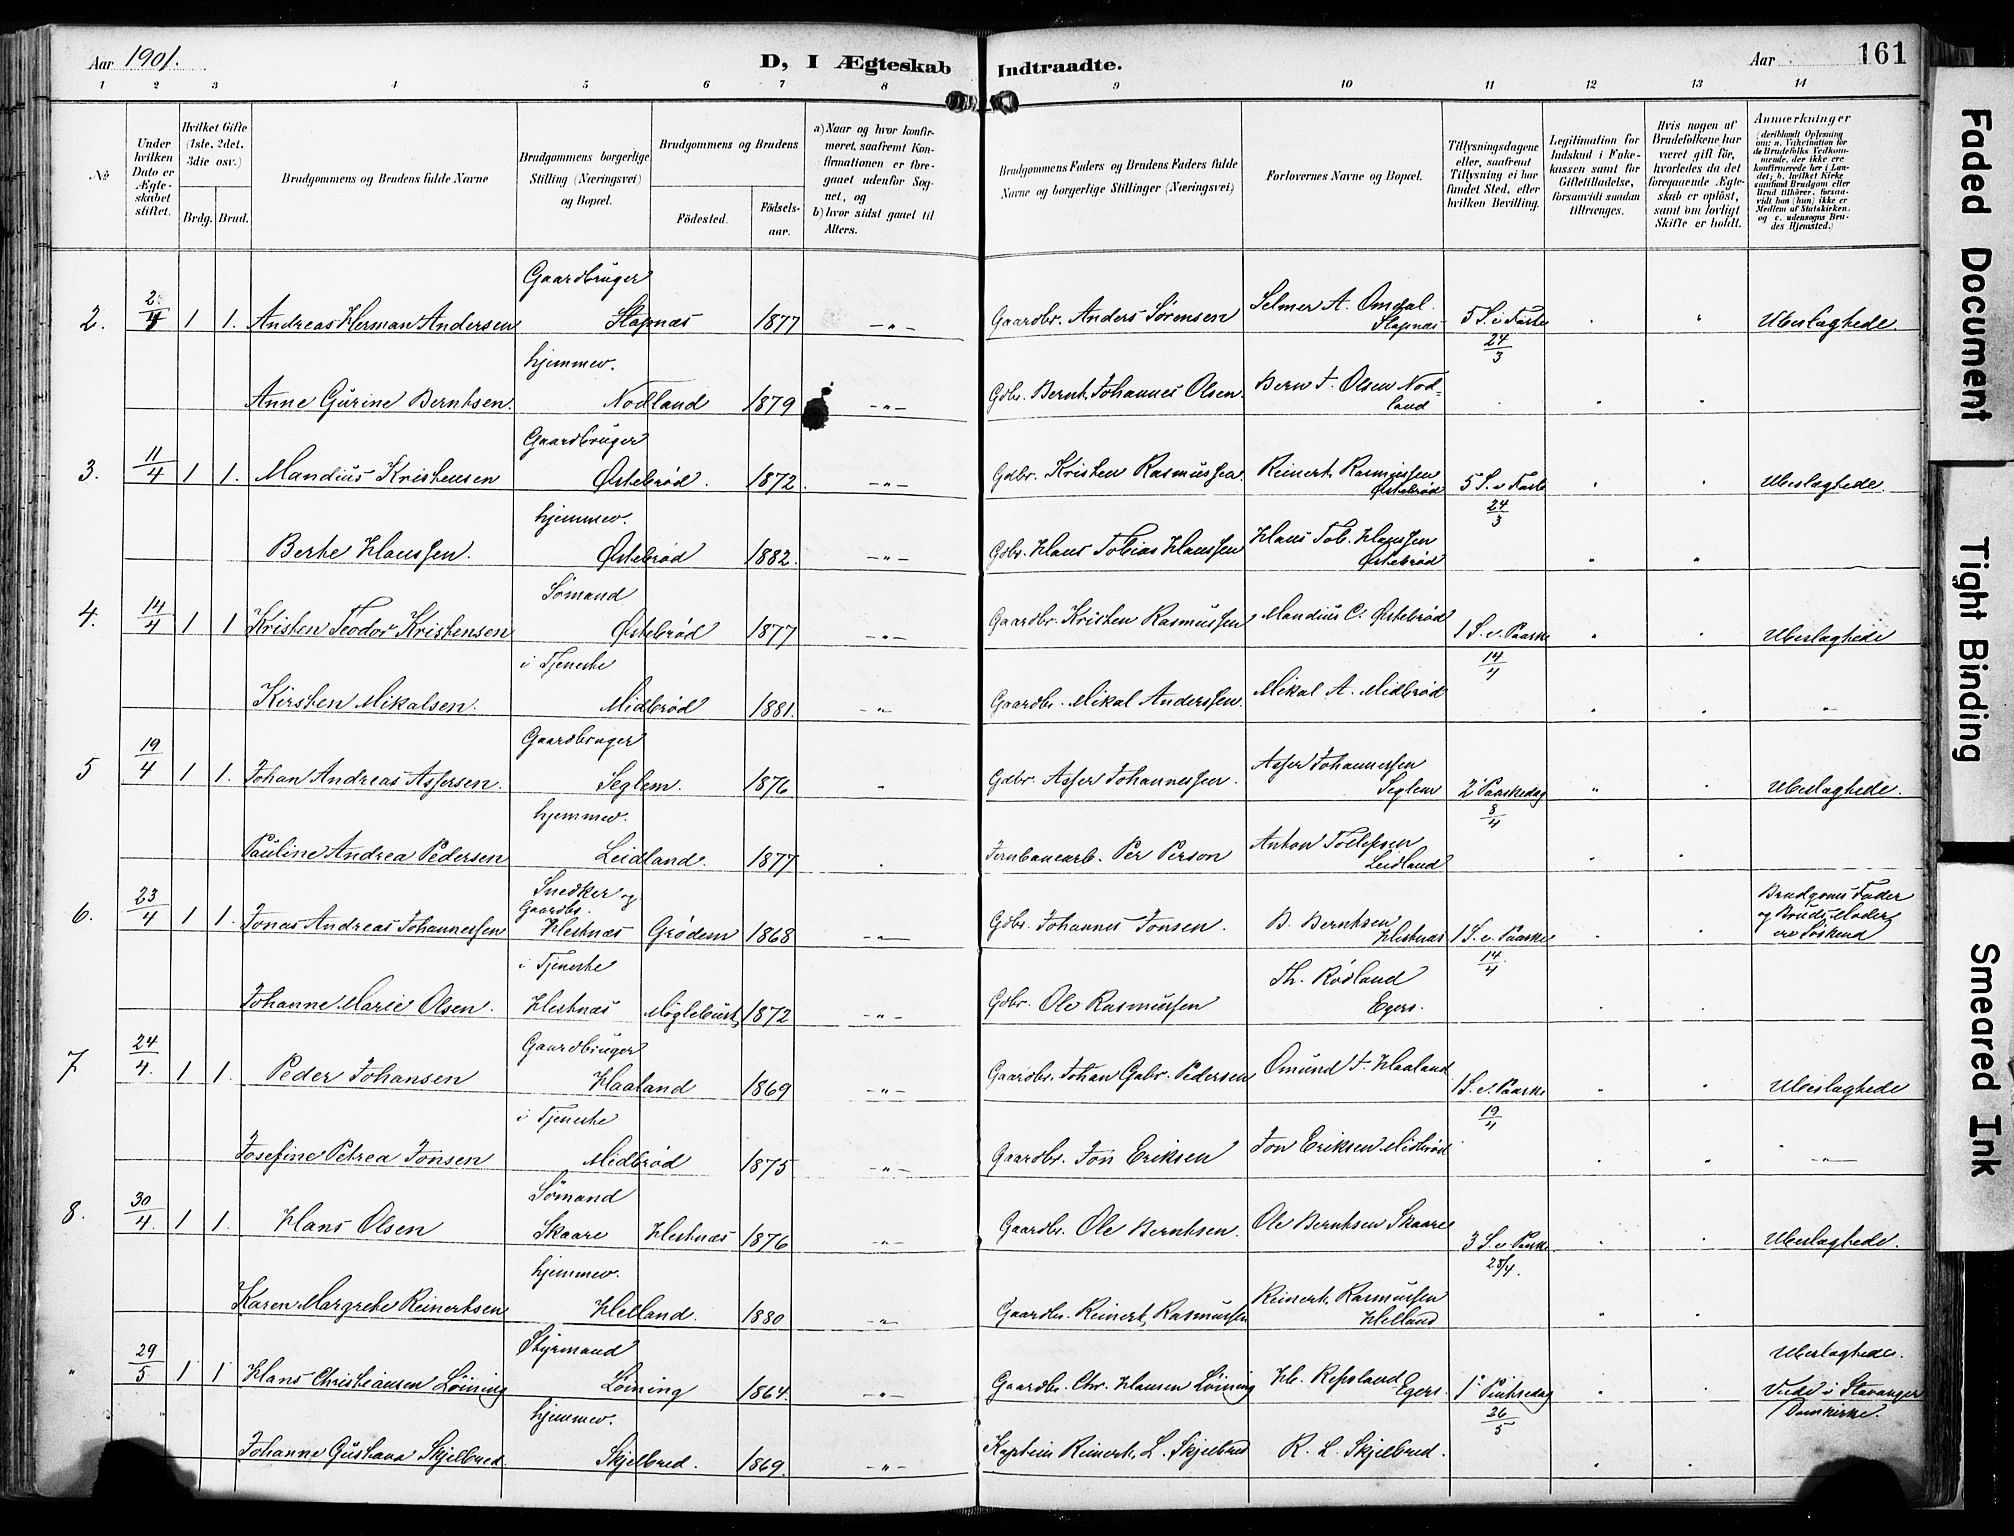 Aar 1901.
D, I Ægteskab
Indtraadte.
Aar
161
1 2 3 4 5 6 7 8 9 10 11 12 13 14
No
Under hvilken Dato er Ægteskabet stiftet.
Hvilket Gifte (1ste, 2det, 3die osv.)
Brdg. Brud.
Brudgommens og Brudens fulde Navne
Brudgommens borgerlige Stilling (Næringsvei) og Bopæl.
Brudgommens og Brudens
Födested.
Födselsaar.
a) Naar og hvor konfirmeret, saafremt Konfirmationen er foregaaet udenfor Sognet, og
b) hvor sidst gaaet til Alters.
Brudgommens Faders og Brudens Faders fulde Navne og borgerlige Stillinger (Næringsvei)
Forlovernes Navne og Bopæl.
Tillysningsdagene eller, saafremt Tillysning ei har fundet Sted, efter hvilken Bevilling.
Legitimation for Indskud i Enkekassen samt for Giftetilladelse, forsaavidt saadan tiltrænges.
Hvis nogen af Brudefolkene har været gift før, hvorledes da det foregaaende Ægteskab er opløst, samt om lovligt Skifte er holdt.
Anmærkninger
(deriblandt Oplysning om: a. Vakcination for de Brudefolks Vedkommende, der ikke ere konfirmerede her i Landet; b. hvilket Kirkesamfund Brudgom eller Brud tilhører, forsaavidt han (hun) ikke er Medlem af Statskirken, og c. udensogns Brudes Hjemsted.)
2. 2/4 1 1. Andreas Herman Andersen Gaardbruger Stapnæs 1877 —"— Gaardbr. Anders Sørensen Selmer A. Omdal. Stapnæs 5 S. i Faste 24/3 " " Ubeslægtede
Anne Gurine Berntsen. hjemmev. Nodland 1879 —"— Gdbr. Bernt Johannes Olsen Bern J. Olsen Nodland " "
3. 11/4 1 1. Mandius Kristensen Gaardbruger Østebrød. 1872. —"— Gdbr. Kristen Rasmussen Reinert Rasmussen Østebrød 5 S. i Faste 24/3 " " Ubeslægtede.
Berte Hanssen. hjemmev. Østebrød 1882. —"— Gdbr. Hans Tobias Hanssen Hans Tob. Hanssen Østebrød " "
4. 14/4 1 1 Kristen Teodor Kristensen Sømand Østebrød 1877 —"— Gaardbr. Kristen Rasmussen Mandius C. Østebrød 1 S. e. Paaske 14/4 " " Ubeslægtede
Kirsten Mikalsen. i Tjeneste Midbrød 1881. " Gaardbr. Mikal Anderssen. Mikal A. Midbrød " " "
5 19/4 1 1. Johan Andreas Assersen. Gaardbruger Seglem. 1876 " Gdbr. Asser Johannessen. Asser Johannessen Seglem 2' Paaskedag 8/4 " " Ubeslægtede.
Pauline Andrea Pedersen hjemmev. Leidland. 1877 . Jernbanearb. Per Person Anton Tollefsen Leidland " "
6. 23/4 1 1. Jonas Andreas Johannessen Snedker og Gaardbr. Hestnæs Grødem 1868 —"— Gdbr. Johannes Jonsen. B. Berntsen Hestnæs 1 S. e. Paaske 14/4 " " Brudgoms Fader og Bruds Moder ere Søskend
Johanne Marie Olsen. i Tjeneste Hestnæs Møglebust, 1872 —"— Gdbr. Ole Rasmussen Th. Rødland Egers. " "
7. 24/4. 1 1. Peder Johansen Gaardbruger Haaland 1869 —"— Gaardbr. Johan Gabr. Pedersen Omund J. Haaland 1 S. e. Paaske 19/4 " " Ubeslægtede
Josefine Petrea Jonsen i Tjeneste Midbrød 1875 —"— Gaardbr. Jon Eriksen Jon Eriksen Midbrød " " —"—
8. 30/4. 1 1. Hans Olsen Sømand Skaare Hestnæs 1876 —"— Gaardbr. Ole Berntsen. Ole Berntsen Skaare 3 S. e. Paaske 28/4. " " Ubeslægtede.
Karen Margrethe Reinertsen hjemmev. Helland. 1880 —"— Gaardbr. Reinert Rasmussen Reinert Rasmussen Helland " "
" 29/5 1 1 Hans Christiansen Løining Styrmand Løining 1864. —"— Gaardbr. Chr. Hansen Løining H. Repsland Egers. 1' Pintsedag 26/5 " " Ubeslægtede. Viede i Stavanger Domkirke.
Johanne Gustava Skjelbred. hjemmev. Skjelbred. 1869. —"— Kaptein Reinert L. Skjelbred R. L. Skjelbred. " "
Faded Document
Tight Binding
Smeared Ink